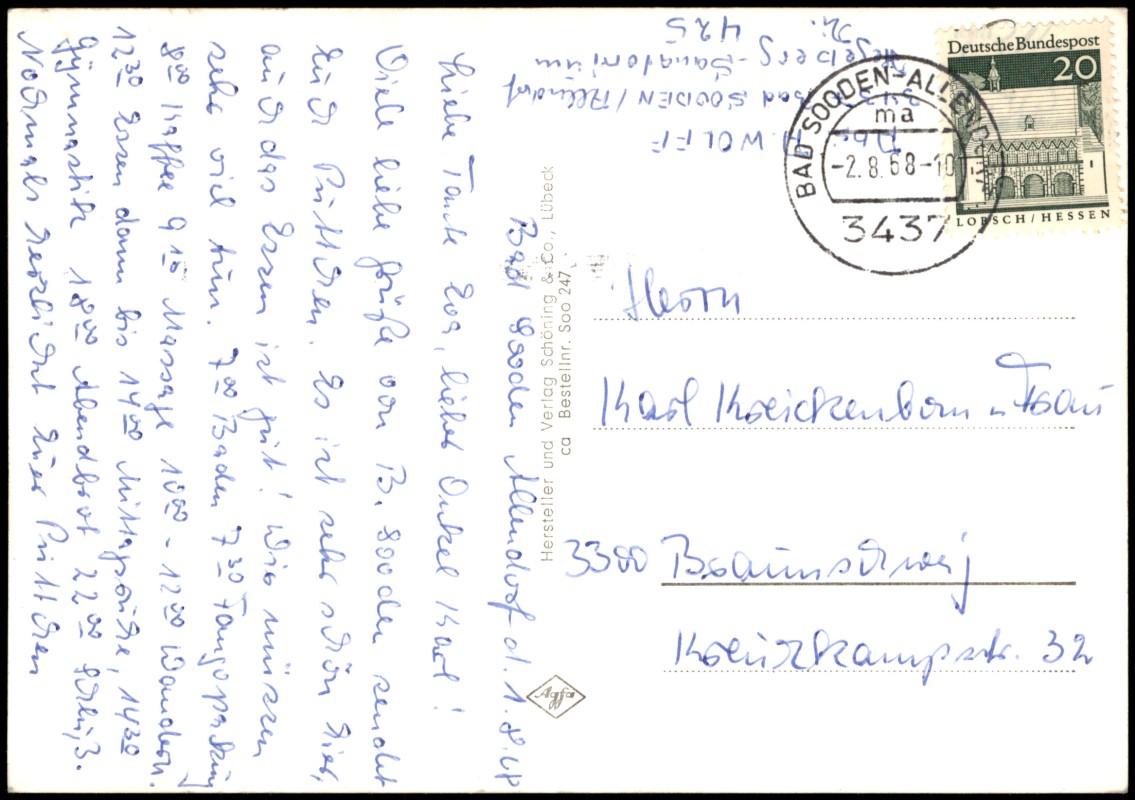 Bad Sooden Allendorf d. 1.8.68
Liebe Tante Eva, lieber Onkel Karl!
Viele liebe Grüße von B. Sooden sendet
Euch Püttchen. Es ist sehr schön hier,
auch das Essen ist gut! Wir müssen
sehr viel tun. 7⁰⁰ Baden 7³⁰ Fangopackung
8⁰⁰ Kaffee 9¹⁰ Massage 10⁰⁰ - 12⁰⁰ Wandern.
12³⁰ Essen dann bis 14⁰⁰ Mittagsruhe, 14³⁰
Gymnastik 18⁰⁰ Abendbrot 22⁰⁰ Schluß.
Nochmals herzlichst Euer Püttchen
Abs. H. WOLFF
3437 Bad SOODEN/Allendorf
Hegeberg-Sanatorium
Zi. 425
Deutsche Bundespost
20
LORSCH/HESSEN
BAD SOODEN-ALLENDORF
ma
-2.8.68-10
3437
Herrn
Karl Kreickenbom u Frau
3300 Braunschweig
Kreuzkampstr. 32
Hersteller und Verlag Schöning & Co., Lübeck
ca Bestellnr. Soo 247
Agfa